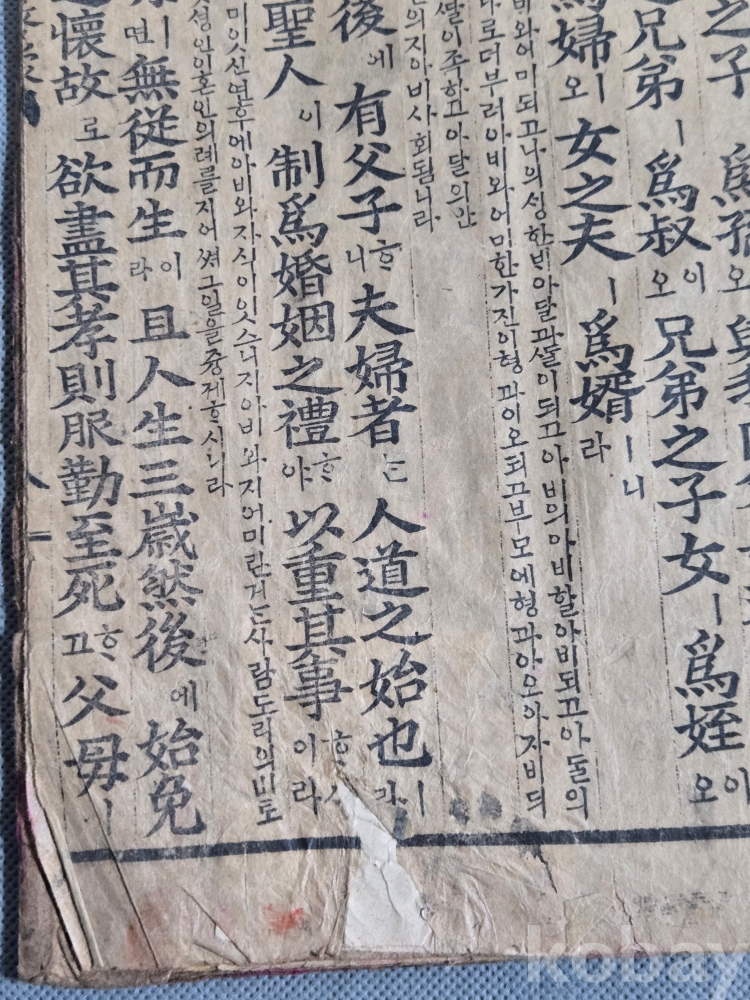 之子
兄弟ㅣ爲叔이오兄弟之子女ㅣ爲姪이오
爲婦ㅣ오女之夫ㅣ爲婿ㅣ니라
비와어미되고나의성한비아달과ᄯᅡᆯ이되고아비의아비할아비되고아둘의
나로더부러아비와어미한가진이형과아오되고부모에형과아오아자비되
ᄯᅡᆯ이족하고아달의안
의지아비사회됨니라
後에有父子ᄒᆞ니夫婦者ᄂᆞᆫ人道之始也ㅣ라
聖人이制爲婚姻之禮ᄒᆞ야以重其事ᄒᆞ시이라
미잇신연후에아비와자식이잇스니지아비와지어미란거는사람도리의비토
셩인이혼인의례를지어써그일을중게ᄒᆞ시니라
면無從而生이라且人生三歲然後에始免
懷故로欲盡其孝則服勤至死ᄒᆞ고父母ㅣ
kobay